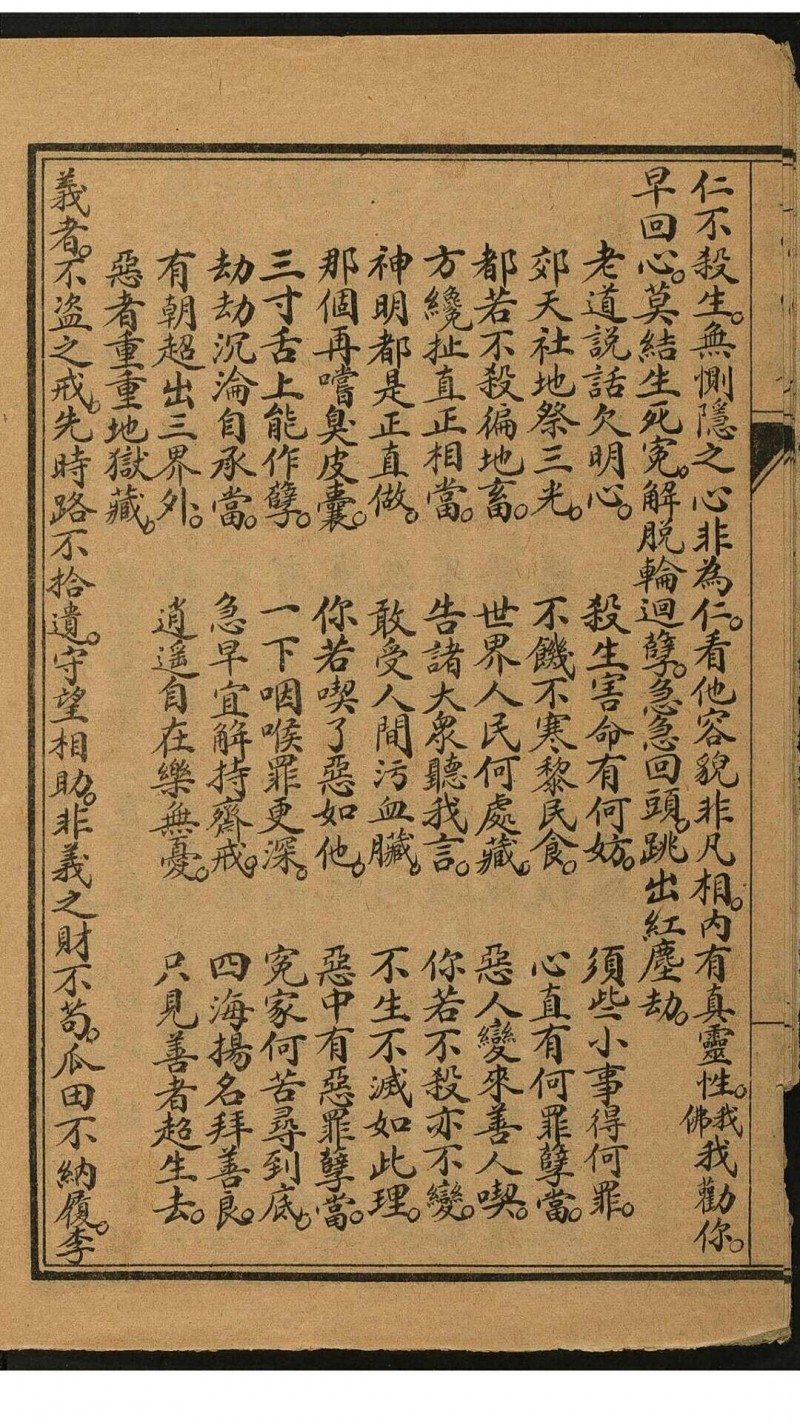 仁不殺生。無惻隱之心非為仁。看他容貌非凡相。內有真靈性。我佛我勸你。
早回心。莫結生死冤。解脫輪迴孽。急急回頭。跳出紅塵劫。
老道說話欠明心。殺生害命有何妨。須些小事得何罪。
郊天社地祭三光。不饑不寒黎民食。心直有何罪孽當。
都若不殺徧地畜。世界人民何處藏。惡人變來善人喫。
方纔扯直正相當。告諸大衆聽我言。你若不殺亦不變。
神明都是正直做。敢受人間污血臟。不生不滅如此理。
那個再嚐臭皮囊。你若喫了惡如他。惡中有惡罪孽當。
三寸舌上能作孽。一下咽喉罪更深。冤家何苦尋到底。
劫劫沉淪自承當。急早宜解持齋戒。四海揚名拜善良。
有朝超出三界外。逍遥自在樂無憂。只見善者超生去。
惡者重重地獄藏。
義者。不盜之戒。先時路不拾遺。守望相助。非義之財不苟。瓜田不納履。李